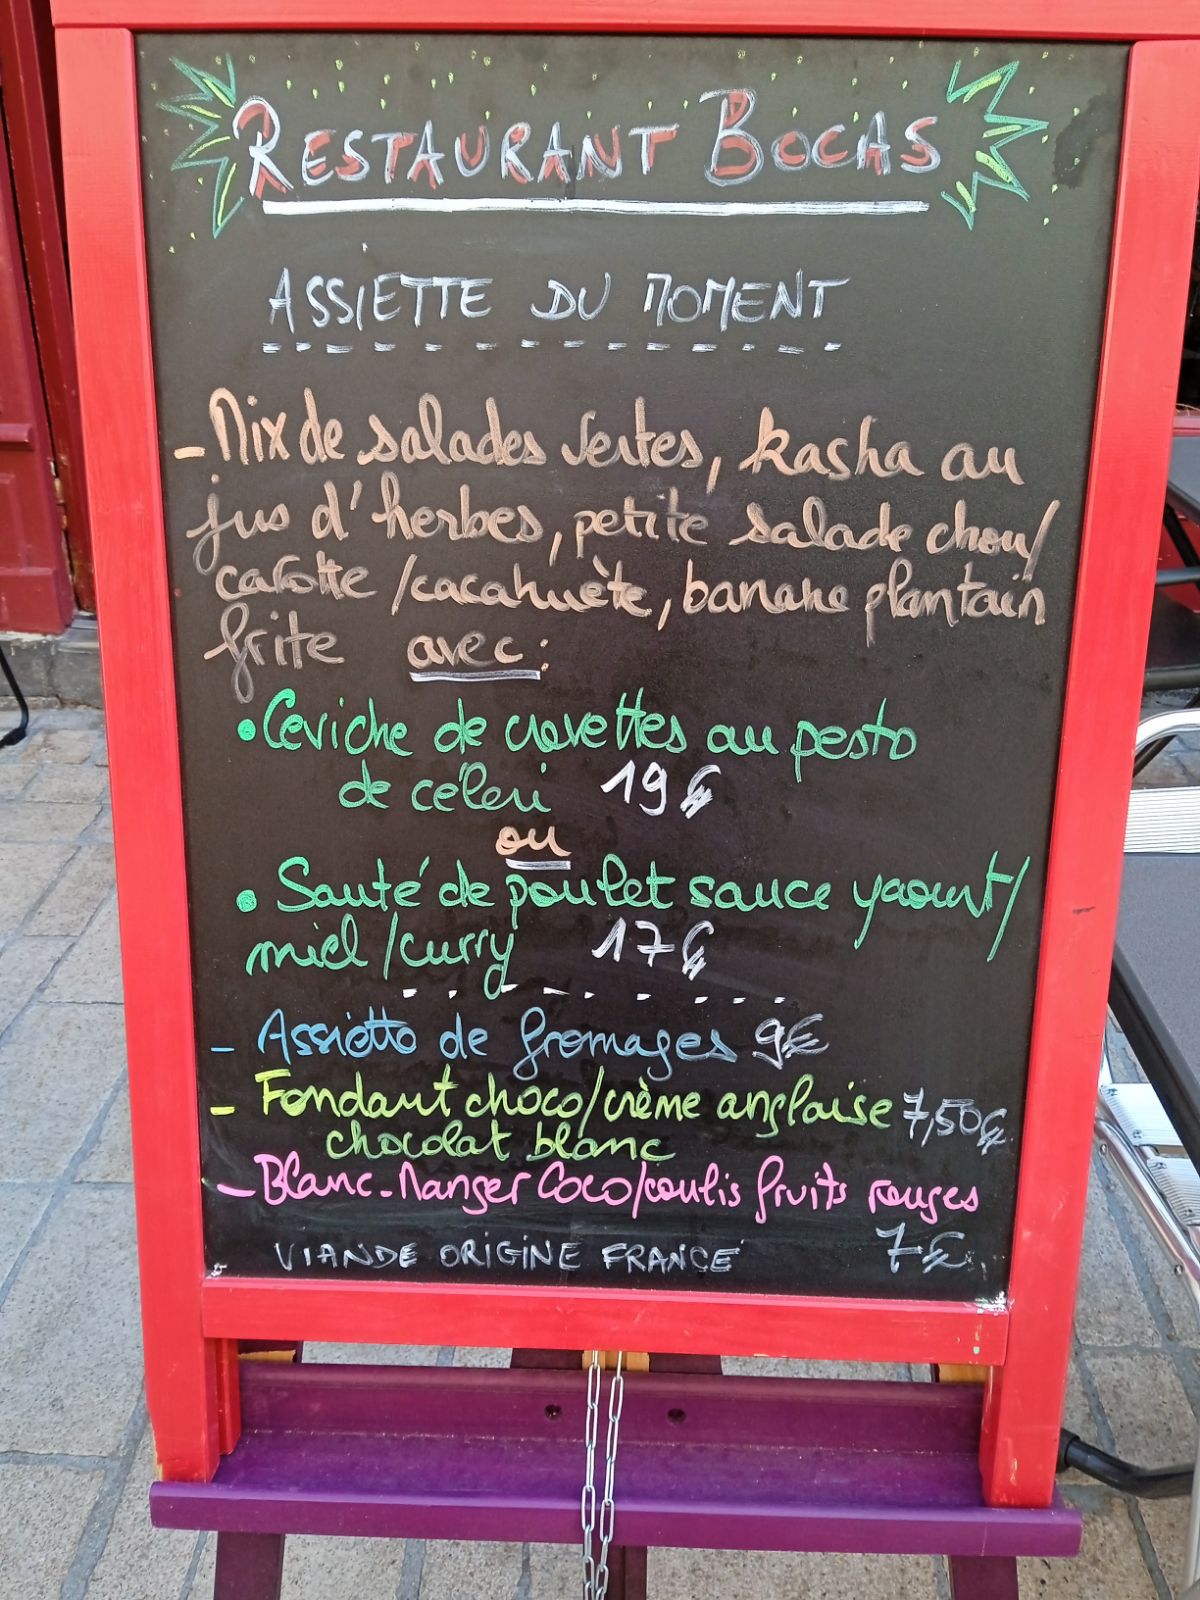 RESTAURANT BOCAS
ASSIETTE DU MOMENT
- Mix de salades vertes, kasha au
jus d'herbes, petite salade chou/
carotte/cacahuète, banane plantain
frite avec:
• Ceviche de crevettes au pesto
de céleri 19€
ou
• Sauté de poulet sauce yaourt/
miel/curry 17€
- Assiette de fromages 9€
- Fondant choco/crème anglaise 7,50€
chocolat blanc
- Blanc-Manger Coco/coulis fruits rouges
VIANDE ORIGINE FRANCE 7€